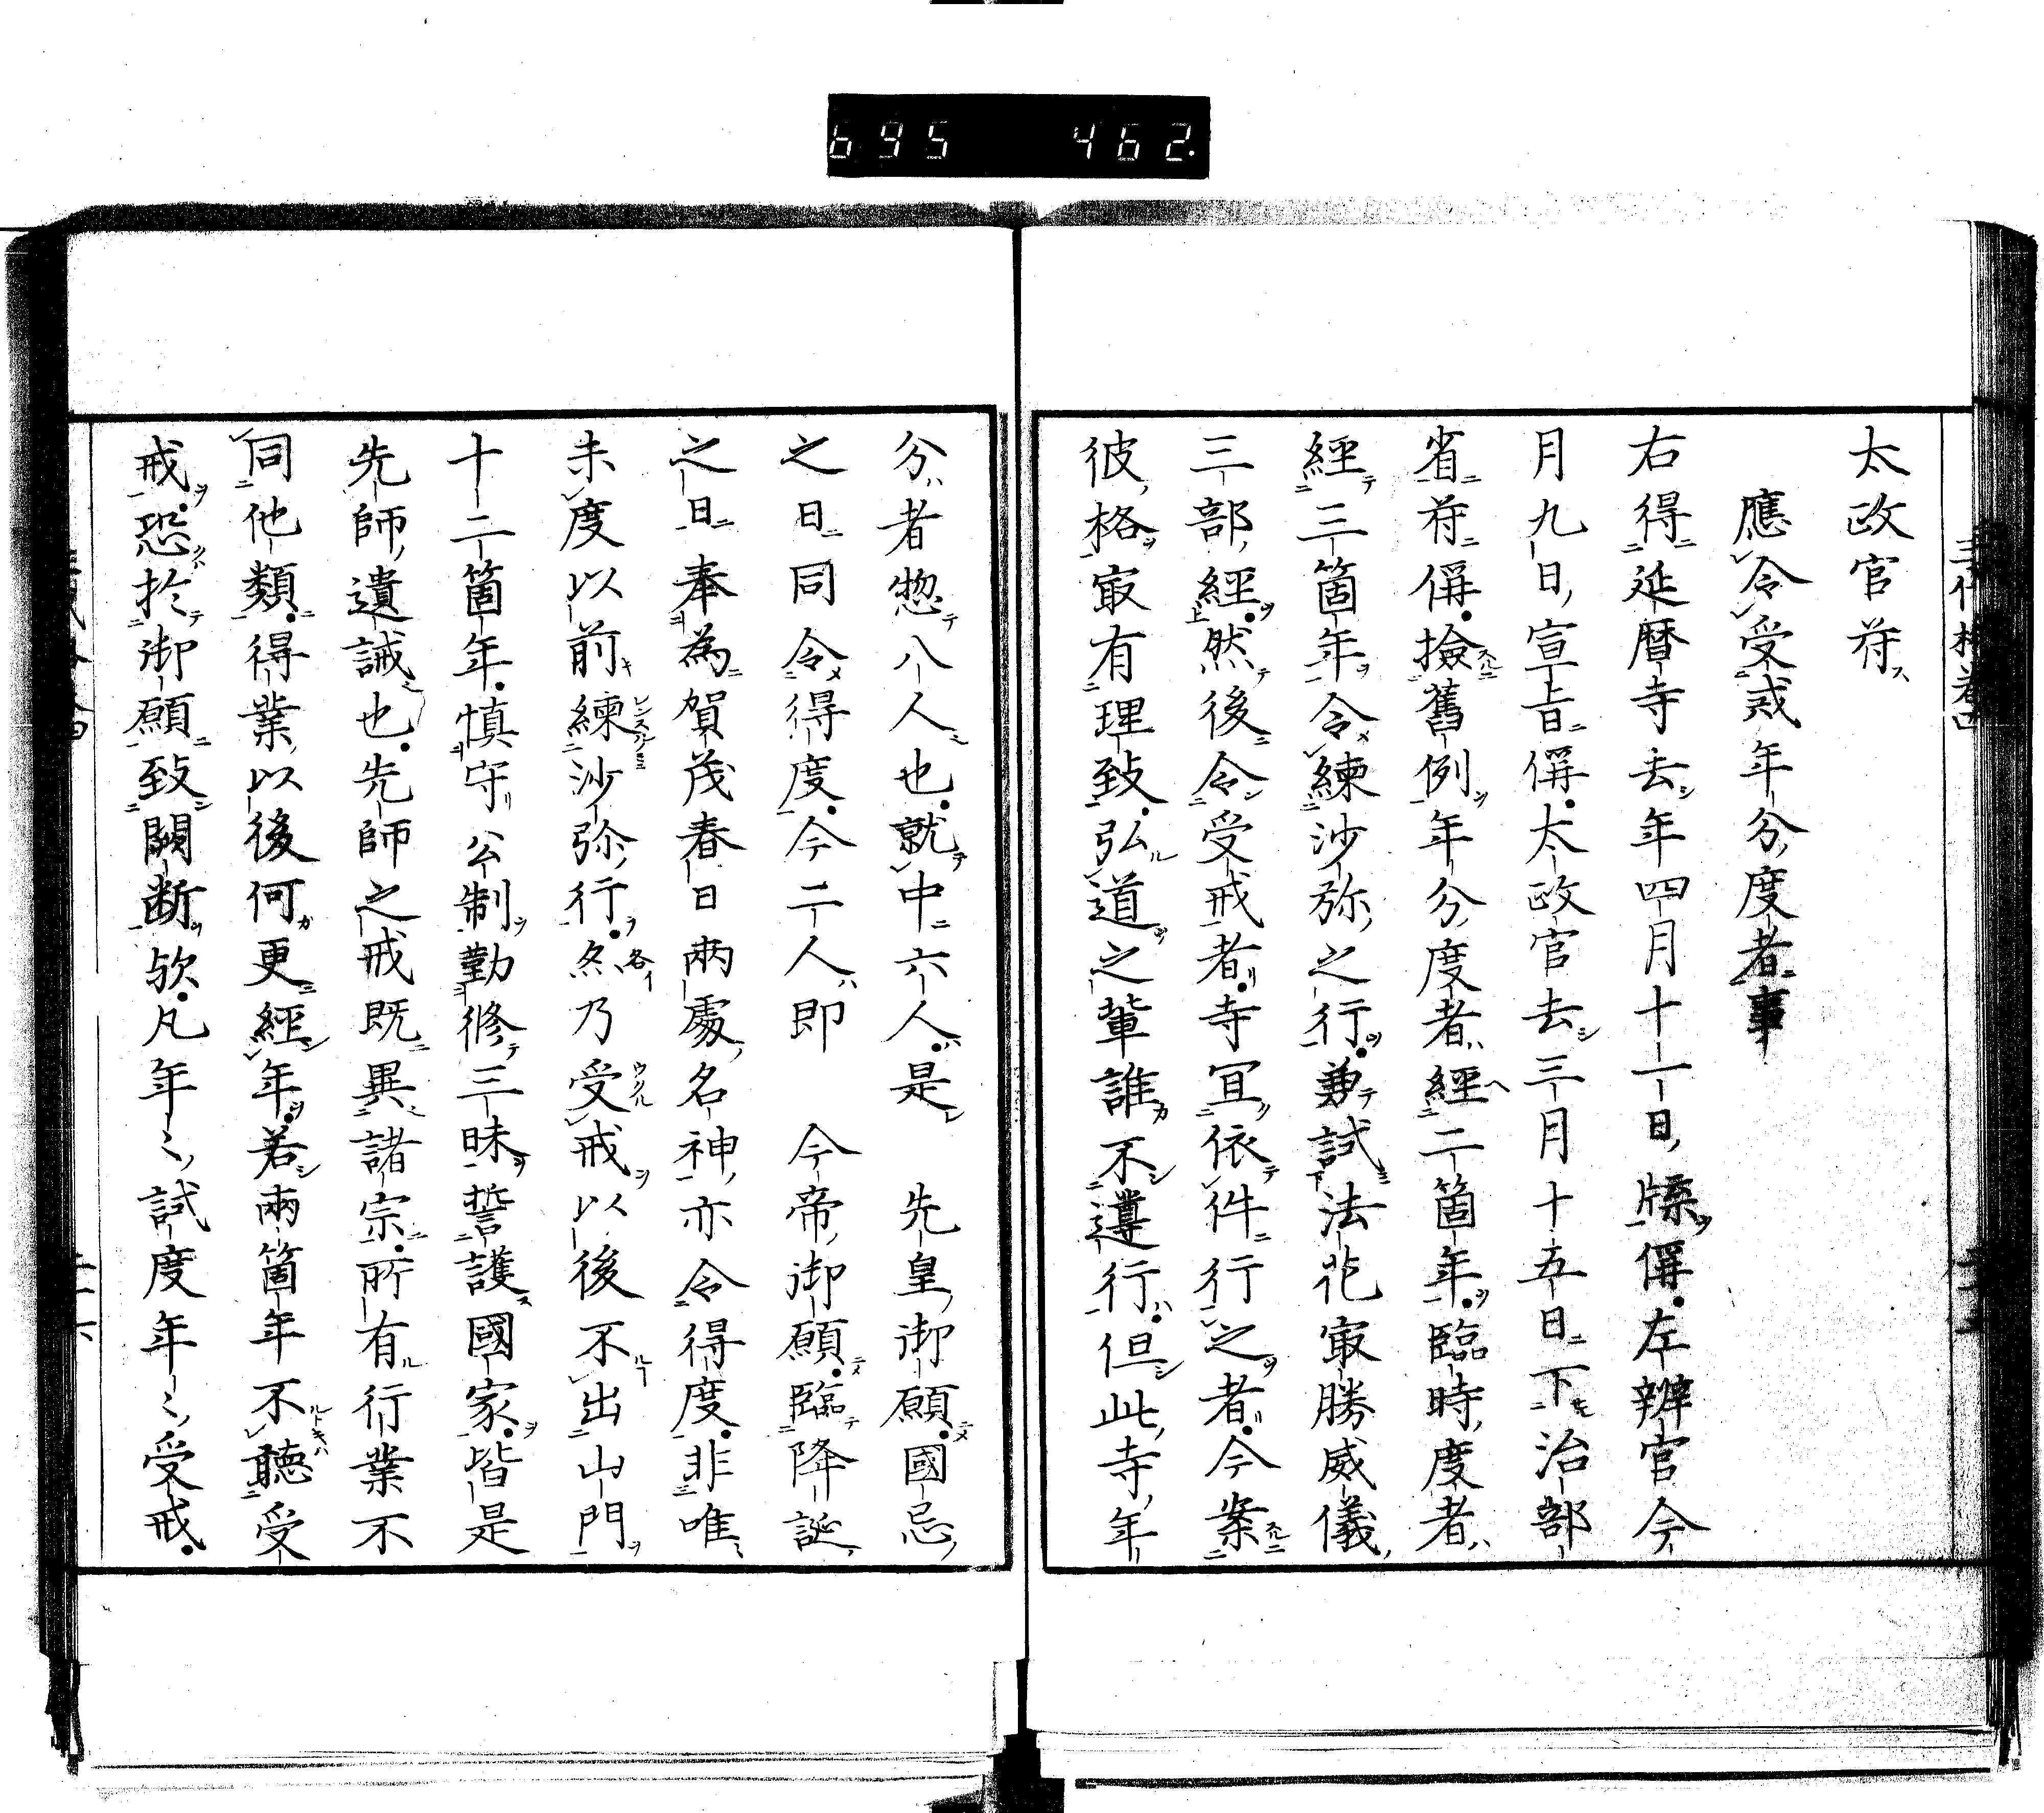 695 462
太政官符
應令受戒年分度者事
右得延暦寺去年四月十一日牒偁左辨官今
月九日宣旨偁太政官去三月十五日下治部
省符偁撿舊例年分度者經二箇年臨時度者
經三箇年令練沙弥之行兼試法花㝡勝威儀
三部經然後令受戒者寺冝依件行之者今案
彼格㝡有理致弘道之輩誰不遵行但此寺年
分者惣八人也就中六人是　先皇御願國忌
之日同令得度今二人即　今帝御願臨降誕
之日奉為賀茂春日兩處名神亦令得度非唯
未度以前練沙弥行各イ乃受戒以後不出山門
十二箇年慎守公制勤修三昧誓護國家皆是
先師遺誡也先師之戒既異諸宗所有行業不
同他類得業以後何更經年若兩箇年不聽受
戒恐於御願致闕断欤凡年〻試度年〻受戒